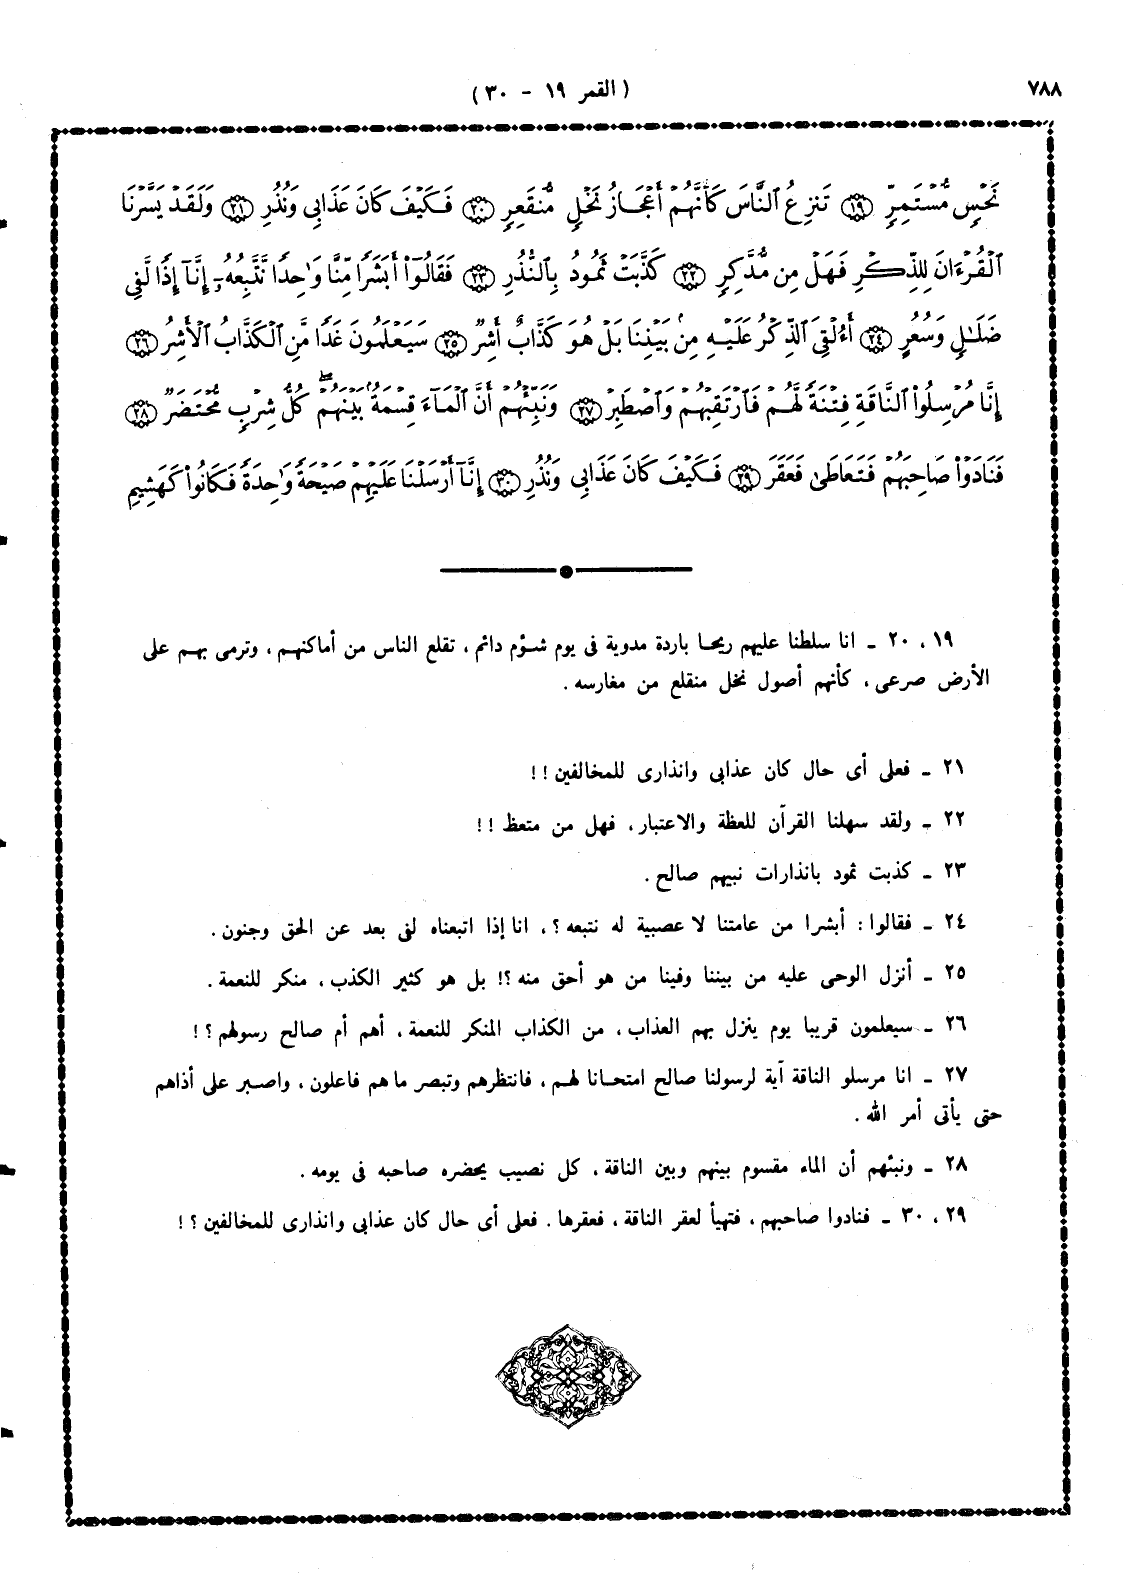 ٧٨٨
( القمر ١٩ - ٣٠ )
نَحْسٍ مُّسْتَمِرٍّ ﴿١٩﴾ تَنزِعُ ٱلنَّاسَ كَأَنَّهُمْ أَعْجَازُ نَخْلٍ مُّنقَعِرٍ ﴿٢٠﴾ فَكَيْفَ كَانَ عَذَابِى وَنُذُرِ ﴿٢١﴾ وَلَقَدْ يَسَّرْنَا
ٱلْقُرْءَانَ لِلذِّكْرِ فَهَلْ مِن مُّدَّكِرٍ ﴿٢٢﴾ كَذَّبَتْ ثَمُودُ بِٱلنُّذُرِ ﴿٢٣﴾ فَقَالُوٓا۟ أَبَشَرًا مِّنَّا وَٰحِدًا نَّتَّبِعُهُۥٓ إِنَّآ إِذًا لَّفِى
ضَلَٰلٍ وَسُعُرٍ ﴿٢٤﴾ أَءُلْقِىَ ٱلذِّكْرُ عَلَيْهِ مِنۢ بَيْنِنَا بَلْ هُوَ كَذَّابٌ أَشِرٌ ﴿٢٥﴾ سَيَعْلَمُونَ غَدًا مَّنِ ٱلْكَذَّابُ ٱلْأَشِرُ ﴿٢٦﴾
إِنَّا مُرْسِلُوا۟ ٱلنَّاقَةِ فِتْنَةً لَّهُمْ فَٱرْتَقِبْهُمْ وَٱصْطَبِرْ ﴿٢٧﴾ وَنَبِّئْهُمْ أَنَّ ٱلْمَآءَ قِسْمَةٌۢ بَيْنَهُمْ ۖ كُلُّ شِرْبٍ مُّحْتَضَرٌ ﴿٢٨﴾
فَنَادَوْا۟ صَاحِبَهُمْ فَتَعَاطَىٰ فَعَقَرَ ﴿٢٩﴾ فَكَيْفَ كَانَ عَذَابِى وَنُذُرِ ﴿٣٠﴾ إِنَّآ أَرْسَلْنَا عَلَيْهِمْ صَيْحَةً وَٰحِدَةً فَكَانُوا۟ كَهَشِيمِ
١٩ ، ٢٠ ـ انا سلطنا عليهم ريحا باردة مدوية فى يوم شؤم دائم ، تقلع الناس من أماكنهم ، وترمى بهم على
الأرض صرعى ، كأنهم أصول نخل منقلع من مغارسه .
٢١ ـ فعلى أى حال كان عذابى وانذارى للمخالفين ! !
٢٢ ـ ولقد سهلنا القرآن للعظة والاعتبار ، فهل من متعظ ! !
٢٣ ـ كذبت ثمود بانذارات نبيهم صالح .
٢٤ ـ فقالوا : أبشرا من عامتنا لا عصبية له نتبعه ؟ ، انا إذا اتبعناه لفى بعد عن الحق وجنون .
٢٥ ـ أنزل الوحى عليه من بيننا وفينا من هو أحق منه ؟! بل هو كثير الكذب ، منكر للنعمة .
٢٦ ـ سيعلمون قريبا يوم ينزل بهم العذاب ، من الكذاب المنكر للنعمة ، أهم أم صالح رسولهم ؟ !
٢٧ ـ انا مرسلو الناقة آية لرسولنا صالح امتحانا لهم ، فانتظرهم وتبصر ما هم فاعلون ، واصبر على أذاهم
حتى يأتى أمر الله .
٢٨ ـ ونبئهم أن الماء مقسوم بينهم وبين الناقة ، كل نصيب يحضره صاحبه فى يومه .
٢٩ ، ٣٠ ـ فنادوا صاحبهم ، فتهيأ لعقر الناقة ، فعقرها . فعلى أى حال كان عذابى وانذارى للمخالفين ؟ !